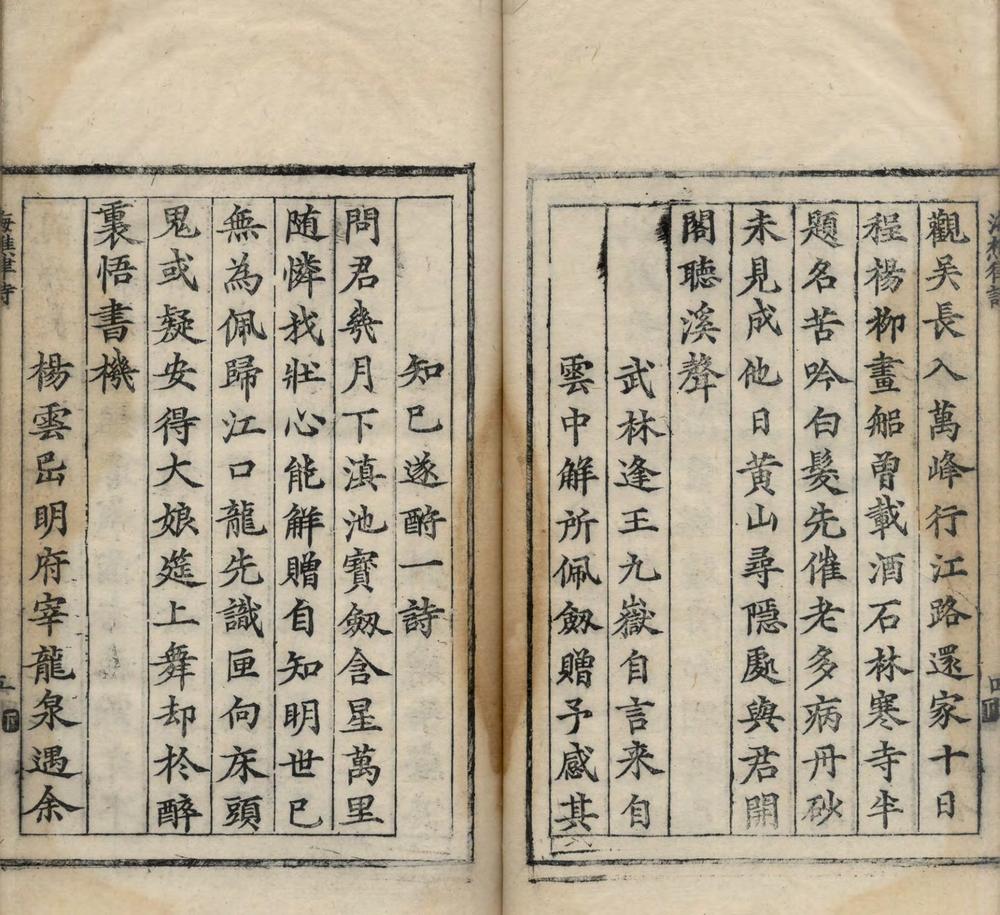 觀吴長入萬峰行江路還家十日
程楊栁畫船曽載酒石林寒寺半
題名苦吟白髮先催老多病丹砂
未見成他日黄山尋隠處與君開
閣聽溪聲
武林逢王九嶽自言来自
雲中解所佩劔贈予感其
知己遂酧一詩
問君幾月下滇池寳劔含星萬里
随憐我壯心能解贈自知明世已
無為佩歸江口龍先識匣向床頭
鬼或疑安得大娘筵上舞却於醉
裏悟書機
楊雲岊明府宰龍泉遇余